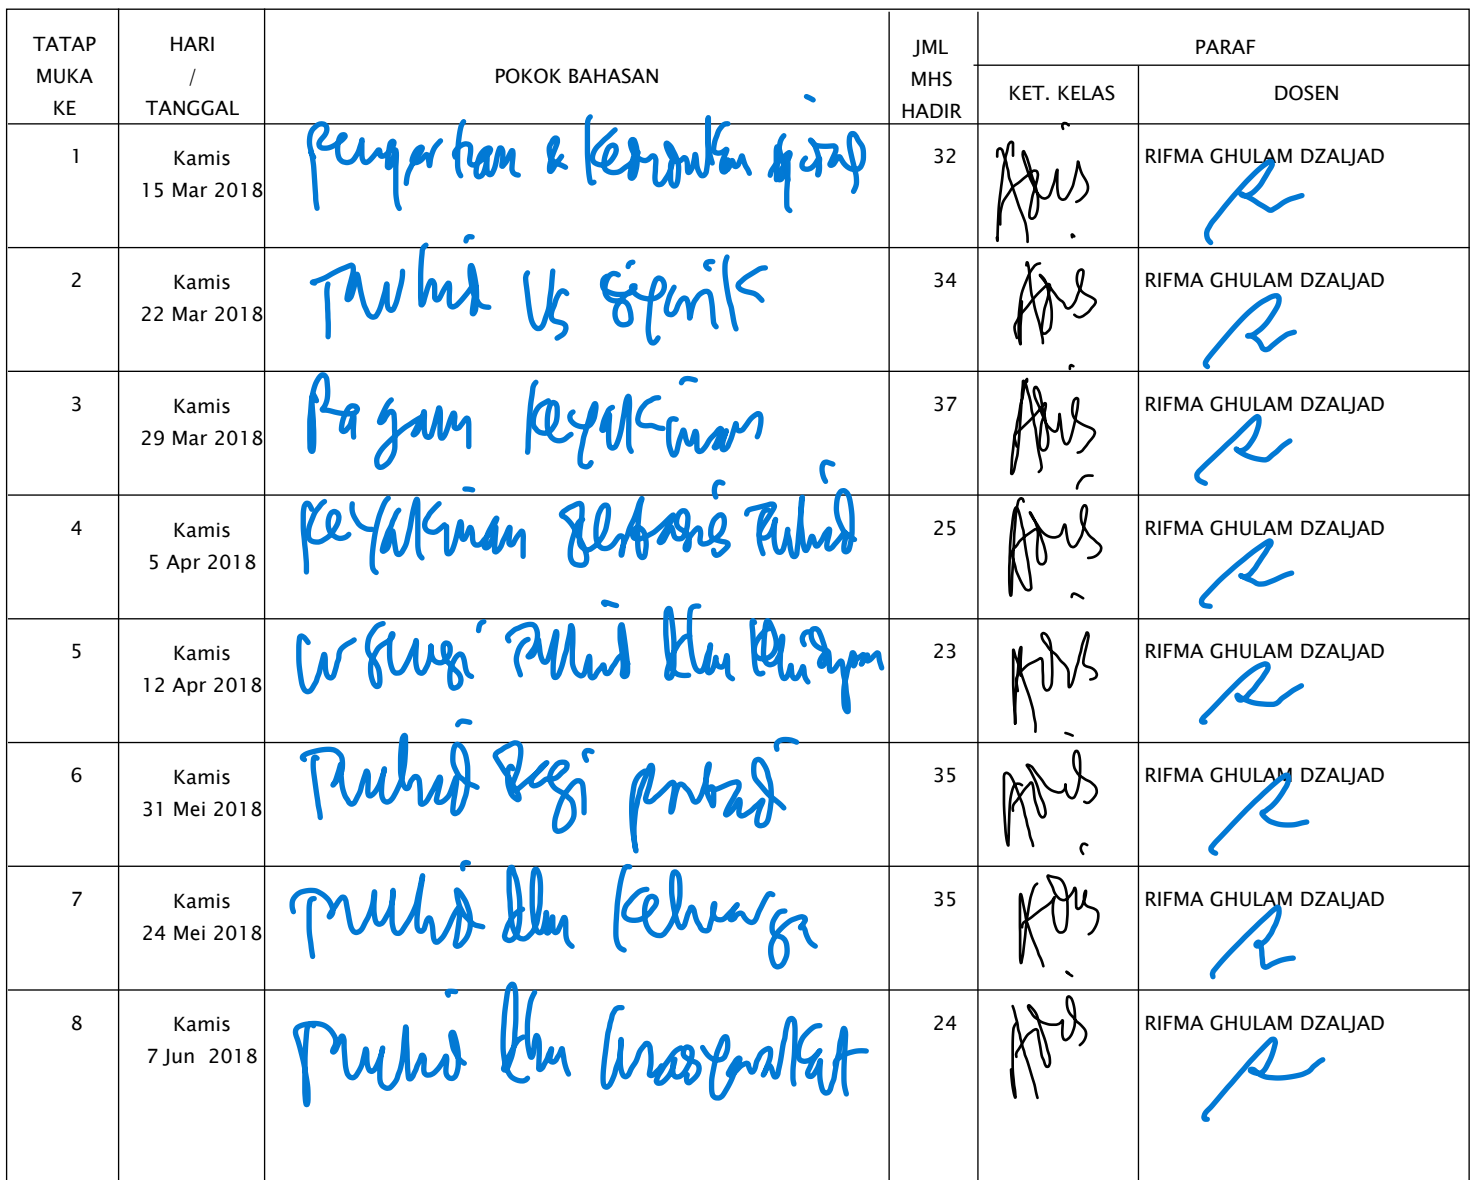 TATAP MUKA KE
HARI / TANGGAL
POKOK BAHASAN
JML MHS HADIR
PARAF
KET. KELAS
DOSEN
1 Kamis 15 Mar 2018 Pengertian & 32 RIFMA GHULAM DZALJAD
2 Kamis 22 Mar 2018 Tauhid Vs Syirik 34 RIFMA GHULAM DZALJAD
3 Kamis 29 Mar 2018 Ragam Keyakinan 37 RIFMA GHULAM DZALJAD
4 Kamis 5 Apr 2018 Keyakinan Berbasis Tauhid 25 RIFMA GHULAM DZALJAD
5 Kamis 12 Apr 2018 Tauhid dlm Kehidupan 23 RIFMA GHULAM DZALJAD
6 Kamis 31 Mei 2018 Tauhid Bagi pribadi 35 RIFMA GHULAM DZALJAD
7 Kamis 24 Mei 2018 Tauhid dlm Keluarga 35 RIFMA GHULAM DZALJAD
8 Kamis 7 Jun 2018 Tauhid dlm masyarakat 24 RIFMA GHULAM DZALJAD